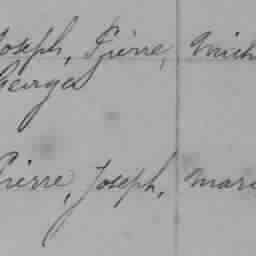 Joseph, Pierre, Mich
Georges
Pierre, Joseph, Mari